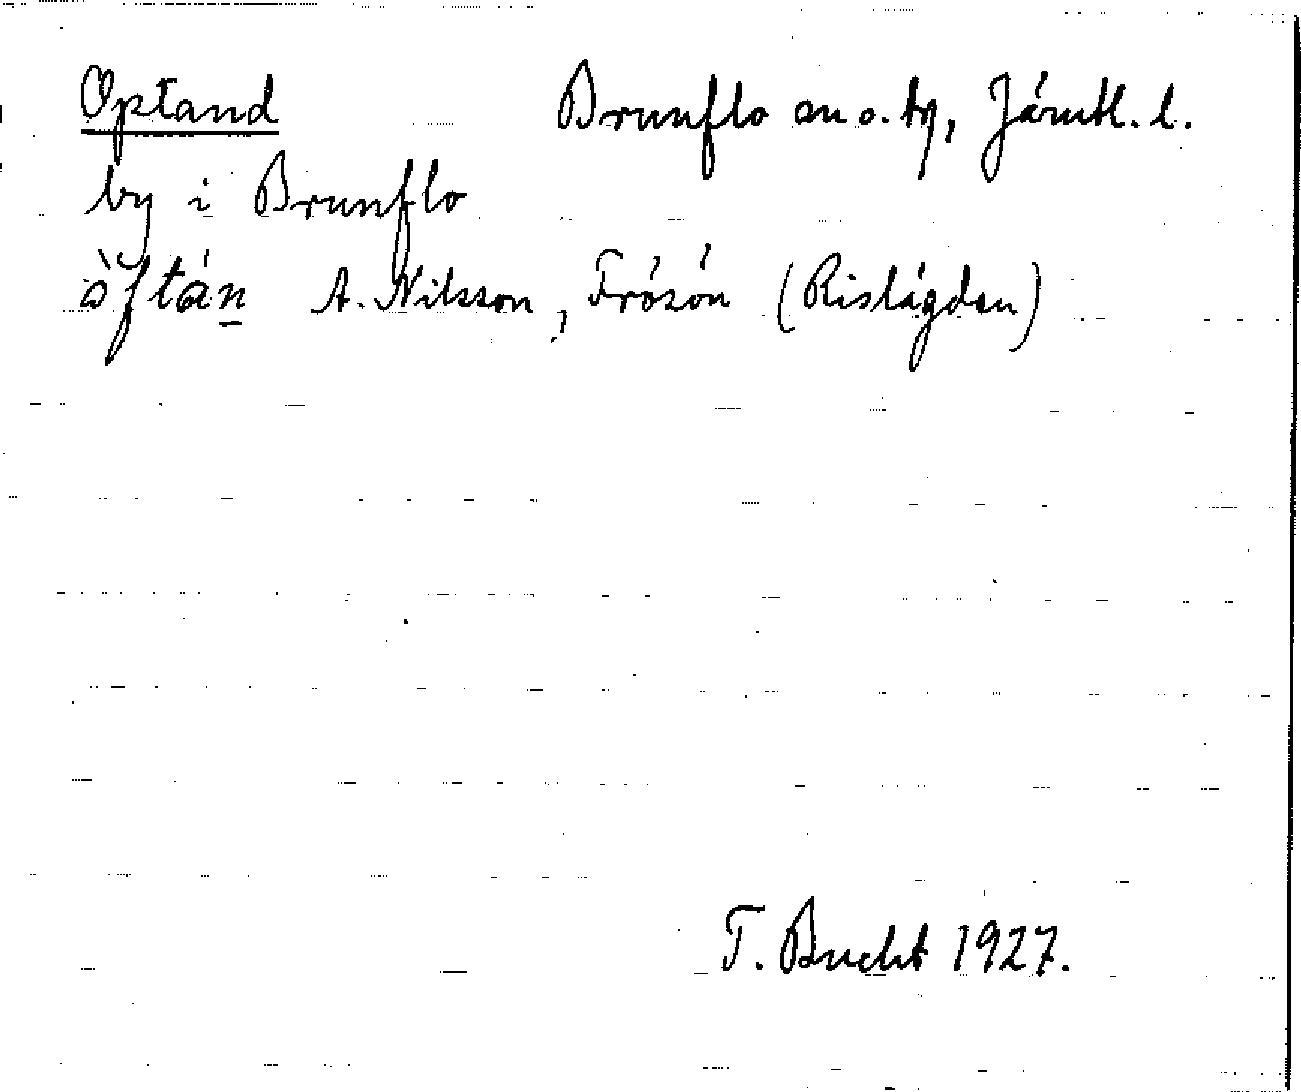 Optand Brunflo sn o. tg, Jämtl. l.
by i Brunflo
A. Nilsson, Frösön (Rislägden)
T. Bucht 1927.